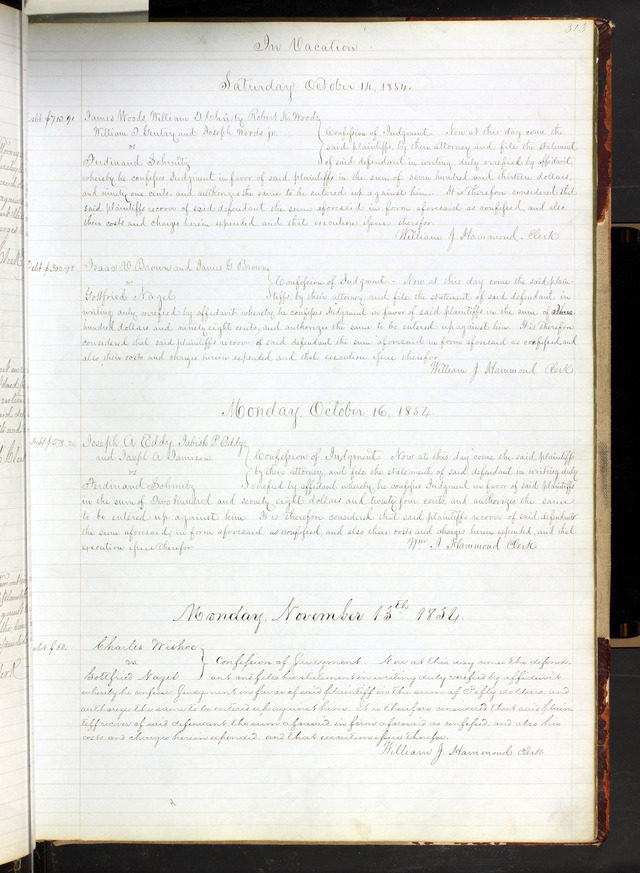 313
In Vacation
Saturday October 14, 1854.
Debt $713.91 James Woods, William T Christy, Robert K. Woods
William D. Gentry and Joseph Woods jr.
vs
Ferdinand Schmitz
Confession of Judgment. Now at this day come the
said plaintiffs, by their attorney and file the statement
of said defendant in writing, duly verefied by affidavit
whereby he confesses Judgment in favor of said plaintiffs in the sum of seven hundred and thirteen dollars,
and ninety one cents, and authorizes the same to be entered up against him. It is Therefore considered that
said plaintiffs recover of said defendant the sum aforesaid in form aforesaid as confessed and also
their costs and charges herein expended and that execution issue therefor
William J. Hammond. Clerk
Debt $302.98 Isaac V Brown and James G. Brown
vs
Gottfried Nagel
Confession of Judgment - Now at this day come the said plain-
tiffs, by their attorney, and file the statement of said defendant in
writing duly verefied by affidavit whereby he confesses Judgment in favor of said plaintiffs in the sum of Three
hundred dollars and ninety eight cents, and authorizes the same to be entered up against him. It is Therefore
considered that said plaintiffs recover of said defendant the sum aforesaid in form aforesaid as confessed, and
also their costs and charges herein expended, and that execution issue therefor
William J Hammond Clerk
Monday, October 16, 1854
Debt $278.24 Joseph A Eddy, Jabish P. Eddy
and Joseph A Jameson
vs
Ferdinand Schmitz
Confession of Judgment. Now at this day come the said plaintiffs
by their attorney, and file the statement of said defendant in writing duly
verefied by affidavit whereby, he confesses Judgment in favor of said plaintiffs
in the sum of Two hundred and seventy eight dollars and twenty four cents, and authorizes the same
to be entered up against him. It is therefore considered that said plaintiffs recover of said defendant
the sum aforesaid, in form aforesaid as confessed, and also their costs and charges herein expended, and that
execution issue therefor Wm J. Hammond Clerk
Monday, November 13th 1854.
Debt $50. Charles
vs
Gottfried Nagel
Confession of Judgment. Now at this day comes the defend-
ant and files his statement in writing duly verefied by affidavit
whereby he confesses Judgment in favor of said plaintiff in the sum of Fifty dollars, and
authorizes the same to be entered up against him. It is therefore considered that said plain
tiff recover of said defendant the sum aforesaid in form aforesaid as confessed and also his
costs and charges herein expended, and that execution issue therefor.
William J. Hammond Clerk